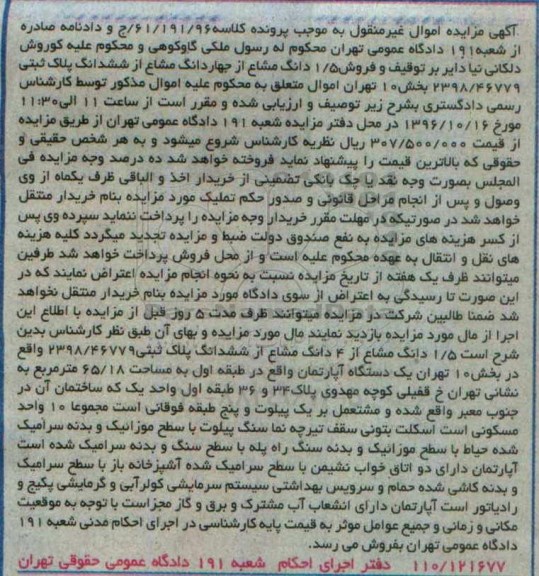 آگهی مزایده اموال غیرمنقول به موجب پرونده کلاسه۶۱/۱۹۱/۹۶/ج و دادنامه صادره
از شعبه۱۹۱ دادگاه عمومی تهران محکوم له رسول ملکی گاوکوهی و محکوم علیه کوروش
دلکانی نیا دایر بر توقیف و فروش۱/۵ دانگ مشاع از چهاردانگ مشاع از ششدانگ پلاک ثبتی
۲۳۹۸/۴۶۷۷۹ بخش۱۰ تهران اموال متعلق به محکوم علیه اموال مذکور توسط کارشناس
رسمی دادگستری بشرح زیر توصیف و ارزیابی شده و مقرر است از ساعت ۱۱ الی۱۱:۳۰
مورخ ۱۳۹۶/۱۰/۱۶ در محل دفتر مزایده شعبه ۱۹۱ دادگاه عمومی تهران از طریق مزایده
از قیمت ۳۰۷/۵۰۰/۰۰۰ ریال نظریه کارشناس شروع میشود و به هر شخص حقیقی و
حقوقی که بالاترین قیمت را پیشنهاد نماید فروخته خواهد شد ده درصد وجه مزایده فی
المجلس بصورت وجه نقد یا چک بانکی تضمینی از خریدار اخذ و الباقی ظرف یکماه از وی
وصول و پس از انجام مراحل قانونی و صدور حکم تملیک مورد مزایده بنام خریدار منتقل
خواهد شد در صورتیکه در مهلت مقرر خریدار وجه مزایده را پرداخت ننماید سپرده وی پس
از کسر هزینه های مزایده به نفع صندوق دولت ضبط و مزایده تجدید میگردد کلیه هزینه
های نقل و انتقال به عهده محکوم علیه است و از محل فروش پرداخت خواهد شد طرفین
میتوانند ظرف یک هفته از تاریخ مزایده نسبت به نحوه انجام مزایده اعتراض نمایند که در
این صورت تا رسیدگی به اعتراض از سوی دادگاه مورد مزایده بنام خریدار منتقل نخواهد
شد ضمنا طالبین شرکت در مزایده میتوانند ظرف مدت ۵ روز قبل از مزایده با اطلاع این
اجرا از مال مورد مزایده بازدید نمایند مال مورد مزایده و بهای آن طبق نظر کارشناس بدین
شرح است ۱/۵ دانگ مشاع از ۴ دانگ مشاع از ششدانگ پلاک ثبتی۲۳۹۸/۴۶۷۷۹ واقع
در بخش۱۰ تهران یک دستگاه آپارتمان واقع در طبقه اول به مساحت ۶۵/۱۸ مترمربع به
نشانی تهران خ قفیلی کوچه مهدوی پلاک۳۴ و ۳۶ طبقه اول واحد یک که ساختمان آن در
جنوب معبر واقع شده و مشتمل بر یک پیلوت و پنج طبقه فوقانی است مجموعا ۱۰ واحد
مسکونی است اسکلت بتونی سقف تیرچه نما سنگ پیلوت با سطح موزائیک و بدنه سرامیک
شده حیاط با سطح موزائیک و بدنه سنگ راه پله با سطح سنگ و بدنه سرامیک شده است
آپارتمان دارای دو اتاق خواب نشیمن با سطح سرامیک شده آشپزخانه باز با سطح سرامیک
و بدنه کاشی شده حمام و سرویس بهداشتی سیستم سرمایشی کولرآبی و گرمایشی پکیج و
رادیاتور است آپارتمان دارای انشعاب آب مشترک و برق و گاز مجزاست با توجه به موقعیت
مکانی و زمانی و جمیع عوامل موثر به قیمت پایه کارشناسی در اجرای احکام مدنی شعبه ۱۹۱
دادگاه عمومی تهران بفروش می رسد.
۱۱۰/۱۲۱۶۷۷ دفتر اجرای احکام شعبه ۱۹۱ دادگاه عمومی حقوقی تهران